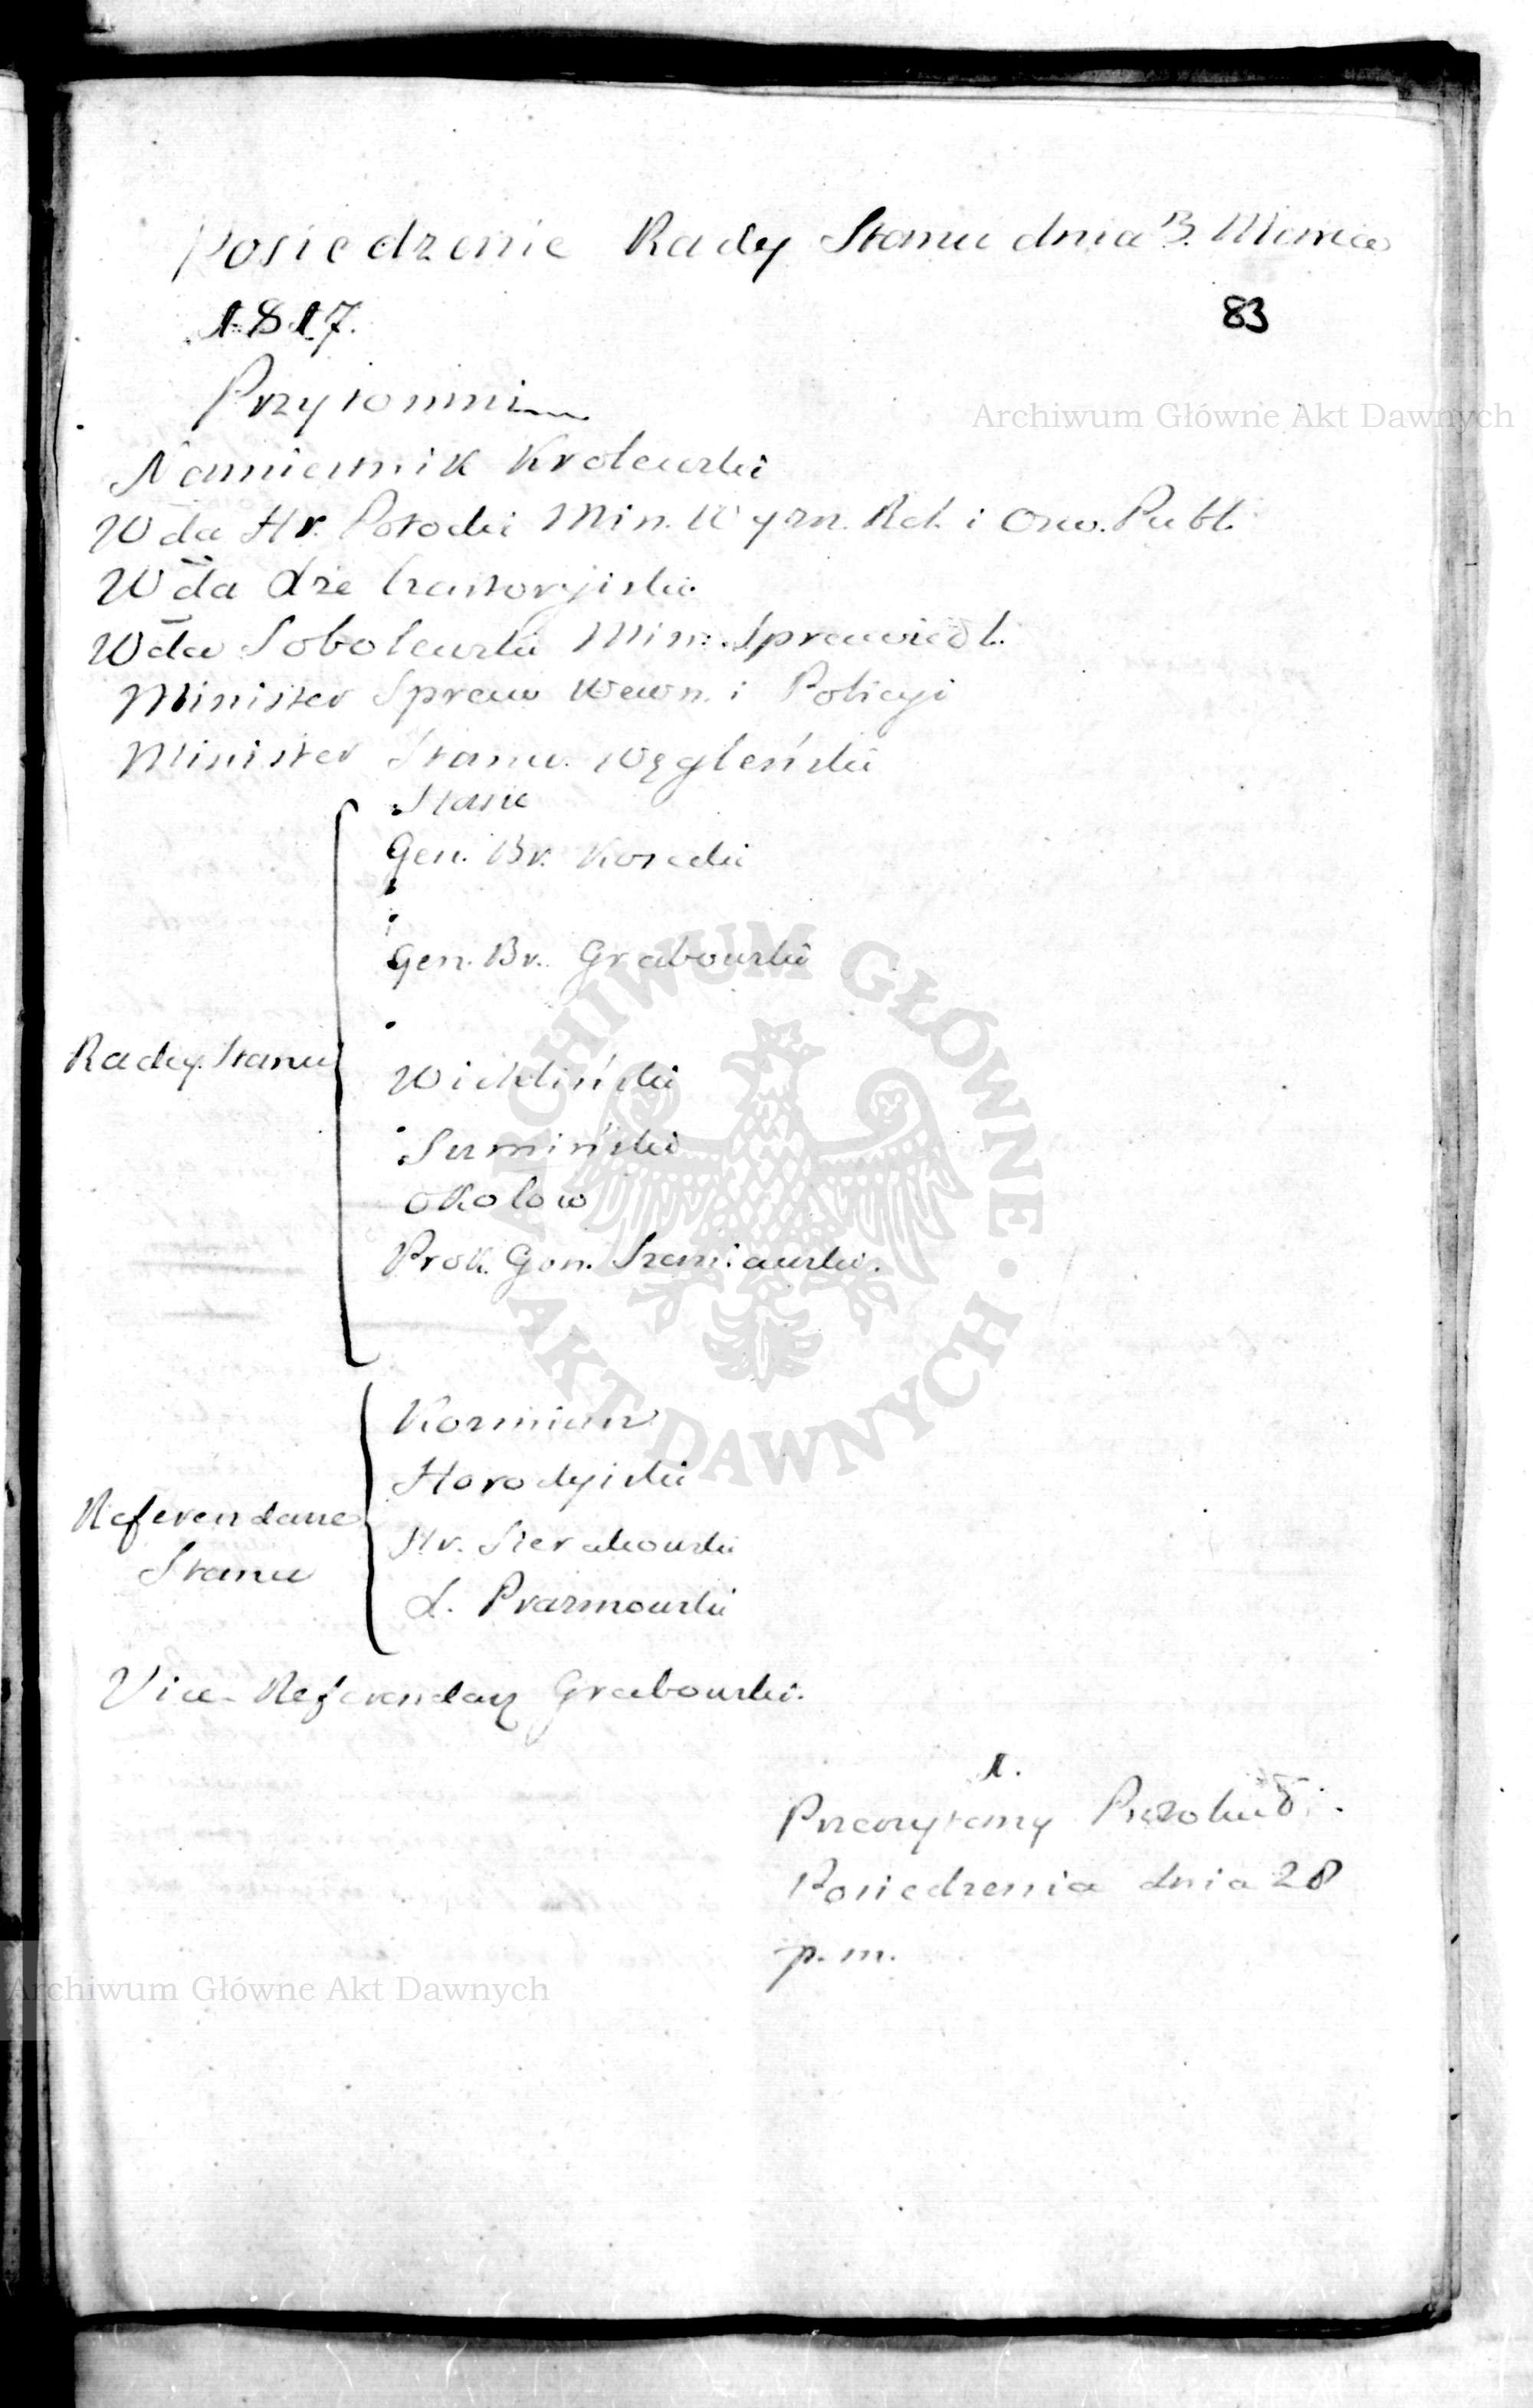 Posiedzenie Rady Stanu dnia 3. Marca
1817.
83
Przytomni
Archiwum Główne Akt Dawnych
Namiestnik Krolewski
Wda Hr. Potocki Min. Wyzn. Rel. i Osw. Publ.
Wda Xże Czartoryiski
Wda Sobolewski Min: Sprawiedl.
Minister Spraw Wewn. i Policyi
Minister Stanu Węgleński
Stasic
Gen. Br. Kosecki
Gen. Br. Grabowski
Radcy Stanu
Wichliński
Sumiński
Okolow
Prok. Gen. Szaniawski.
ARCHIWUM GŁÓWNE AKT DAWNYCH
Kozmian
Horodyiski
Referendarze
Hr. Sierakowski
Stanu
X. Prazmowski
Vice-Referendarz Grabowski.
1.
Przeczytany Protokuł
Posiedzenia dnia 28
p. m.
Archiwum Główne Akt Dawnych